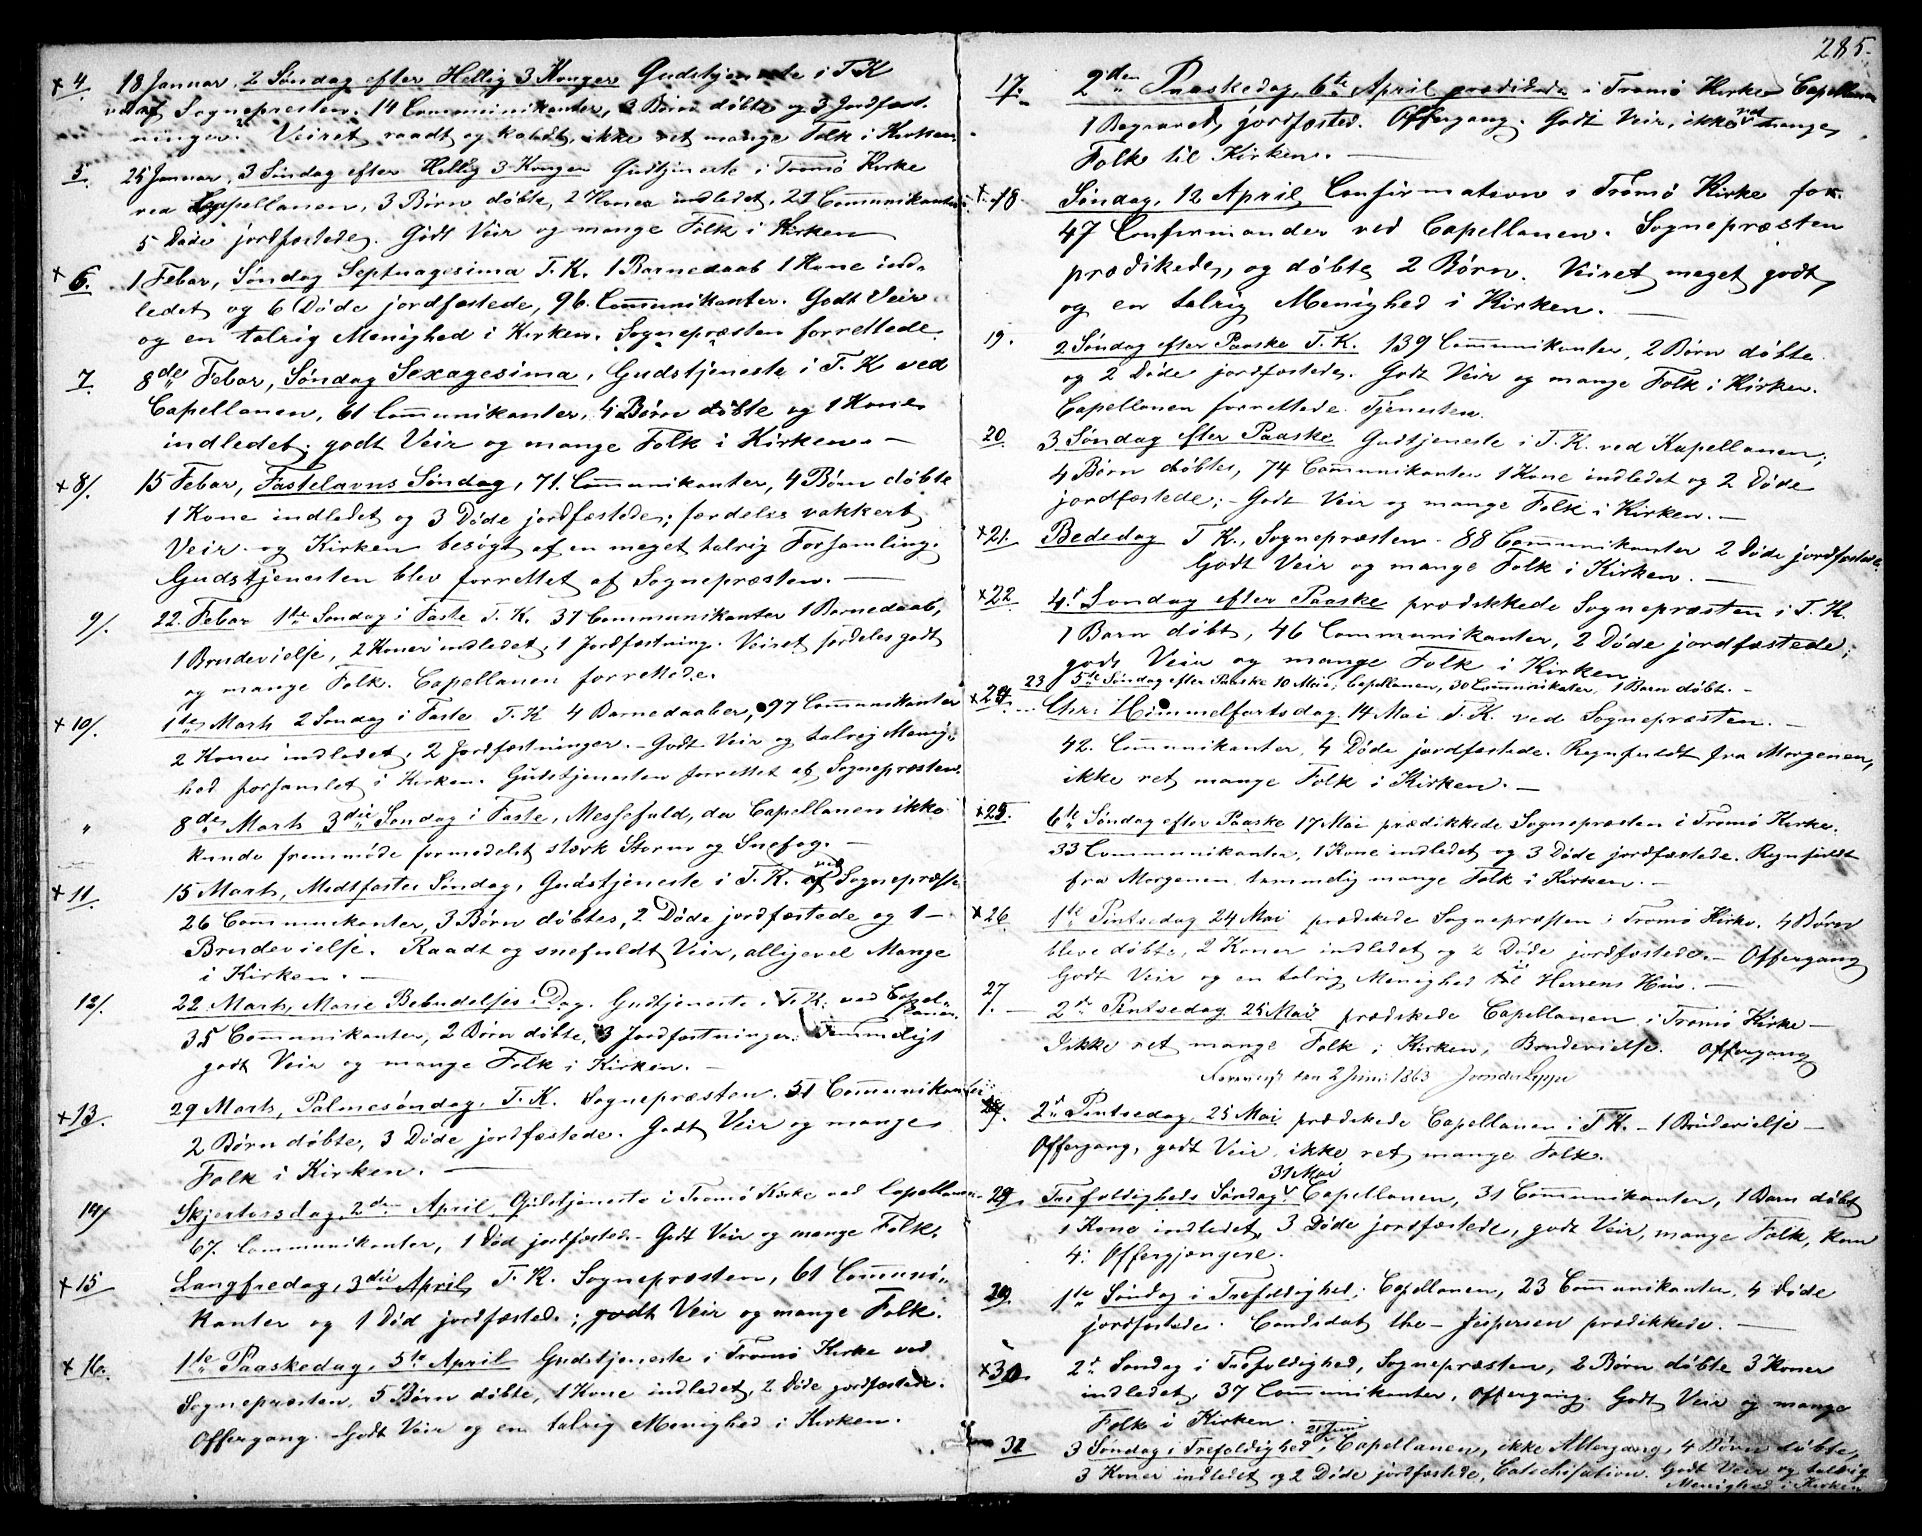 285.
x 4. 18 Januar, 2 Søndag efter Hellig 3 Konger Gudstjeneste i T. K
ved af Sognepresten. 14 Communikanter, 3 Børn døbte og 3 Jordfæst-
ninger. Veiret raadt og koldt, ikke ret mange Folk i Kirken.
5. 25 Januar, 3 Søndag efter Hellig 3 Konger Gudtjeneste i Tromø Kirke
ved Capellanen, 3 Børn døbte, 2 Koner indledet, 21 Communikanter
5 Døde jordfæstede. Godt Veir og mange Folk i Kirken
x 6. 1 Febar, Søndag Septuagesima T. K. 1 Barnedaab 1 Kone ind-
ledet og 6 Døde jordfæstede, 96 Communikanter. Godt Veir
og en talrig Menighed i Kirken. Sognepræsten forrettede.
7. 8de Febar, Søndag Sexagesima, Gudstjeneste i T. K ved
Capellanen, 61 Communikanter, 4 Børn døbte og 1 Kone
indledet, godt Veir og mange Folk i Kirken. –
x 8/. 15 Febar, Fastelavns Søndag, 71 Communikanter, 4 Børn døbte
1 Kone indledet og 3 Døde jordfæstede; særdeles vakkert
Veir og Kirken besøgt af en meget talrig Forsamling.
Gudstjenesten blev forrettet af Sognepræsten. –
9/. 22. Febar 1te Søndag i Faste T. K. 37 Communikanter 1 Barnedaab,
1 Brudevielse, 2 Koner indledet, 1 Jordfæstning. Veiret særdeles godt
og mange Folk. Capellanen forrettede.
x 10/. 1te Marts 2 Søndag i Faste T. K 4 Barnedaaber, 97 Communikanter
2 Koner indledet, 2 Jordfæstninger. – Godt Veir og talrig Menig-
hed forsamlet i Kirken. Gudstjenesten forrettet af Sognepræsten.
" 8de Marts 3die Søndag i Faste, Messefald, da Capellanen ikke
kunde fremmøde formedelst stærk Storm og Snefog. –
x 11. 15 Marts, Midtfaste Søndag, Gudstjeneste i T. K. af ved Sognepræst.
26 Communikanter, 3 Børn døbtes, 2 Døde jordfæstede og 1 –
Brudevielse. Raadt og snefuldt Veir, alligevel Mange
i Kirken. –
12/. 22 Marts, Marie Bebudelses Dag. Gudtjeneste i T. K. ved Capel-
lanen.
35 Communikanter, 2 Børn døbte, 3 Jordfæstninger. Temmeligt
godt Veir og mange Folk i Kirken. –
x 13. 29 Marts, Palmesøndag, T. K. Sognepræsten. 51 Communikanter
2 Børn døbte, 3 Døde jordfæstede. Godt Veir og mange
Folk i Kirken. –
14/ Skjertorsdag, 2den April, Gudstjeneste i Tromø Kirke ved Capellanen
67. Communikanter, 1 Død jordfæstede – Godt Veir og mange Folk.
x 15 Langfredag, 3die April, T. K. Sognepræsten, 61 Communi-
kanter og 1 Død jordfæstede; godt Veir og mange Folk.
x 16. 1te Paaskedag, 5te April Gudstjeneste i Tromø Kirke ved
Sognepræsten, 5 Børn døbte, 1 Kone indledet, 2 Døde jordfæstede.
Offergang. Godt Veir og en talrig Menighed i Kirken.
17. 2den Paaskedag, 6te April prædikede i Tromø Kirke Capellanen
1 Begravet, jordfæsted. Offergang. Godt Veir, ikke ret mange
Folk til Kirken. –
x 18. Søndag, 12 April Confirmation i Tromø Kirke for
47 Confirmander ved Capellanen. Sognepræsten
prædikede, og døbte 2 Børn. Veiret meget godt,
og en talrig Menighed i Kirken. –
19. 2 Søndag efter Paaske T. K. 139 Communikanter, 2 Børn døbte
og 2 Døde jordfæstede. Godt Veir og mange Folk i Kirken.
Capellanen forrettede Tjenesten.
20. 3 Søndag efter Paaske Gudtjeneste i T. K. ved Kapellanen;
4 Børn døbtes, 74 Communikanter 1 Kone indledet og 2 Døde
jordfæstede; – Godt Veir og mange Folk i Kirken. –
x 21. Bededag T K., Sognepræsten. 88 Communikanter 2 Døde jordfæstede
Godt Veir og mange Folk i Kirken. –
x 22 4. Søndag efter Paaske prædikkede Sognepræsten i T. K.
1 Barn døbt, 46 Communikanter, 2 Døde jordfæstede;
godt Veir og mange Folk i Kirken.
23 5te Søndag efter Paaske 10 Mai; Capellanen, 30 Communikater, 1 Barn døbt. –
x 24. Chr: Himmelfartsdag 14 Mai T. K. ved Sognepræsten. –
42. Communikanter, 4 Døde jordfæstede. Regnfuldt fra Morgenen,
ikke ret mange Folk i Kirken. –
x 25. 6te Søndag efter Paaske 17 Mai prædikkede Sognepræsten i Tromø Kirke.
33 Communikanter, 1 Kone indledet og 3 Døde jordfæstede. Regnfuldt
fra Morgenen, temmelig mange Folk i Kirken. –
x 26 1te Pintsedag 24 Mai prædikede Sognepræsten i Tromø Kirke. 4 Børn
bleve døbte, 2 Koner indledet og 2 Døde jordfæstede. – Offergang
Godt Veir og en talrig Menighed i Herrens Huus. –
27. – 2den Pintsedag 25 Mai prædikede Capellanen i Tromø Kirke –
Ikke ret mange Folk i Kirken, Brudevielse. Offergang
den 2 Juni 1863
2den Pintsedag, 25 Mai prædikede Capellanen i T K. – 1 Brudevielse –
Offergang, godt Veir, ikke ret mange Folk.
31 Mai
Trefoldigheds Søndag, Capellanen, 31 Communikanter, 1 Barn døbt
1 Kone indledet, 3 Døde jordfæstede, godt Veir, mange Folk, kun
4: Offergjængere.
29. 1te Søndag i Trefoldighed; Capellanen, 23 Communikanter, 4 Døde
jordfæstede. Candidat theo– Jespersen prædikkede. –
x 30. 2. Søndag i Trefoldighed, Sognepræsten, 2 Børn døbte 3 Koner
indledet, 37 Communikanter, Offergang. Godt Veir og mange
Folk i Kirken.
21 Juni
31 3 Søndag i Trefoldighed, Capellanen, ikke Altergang, 4 Børn døbte,
3 Koner indledet og 2 Døde jordfæstede, Catechisation. Godt Veir og talrig
Menighed i Kirken